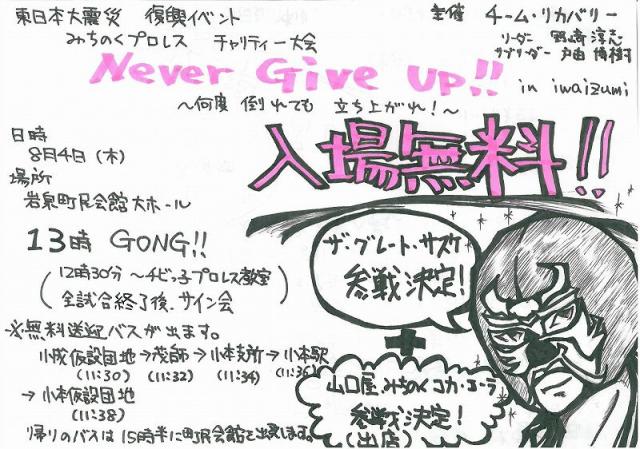 東日本大震災 復興イベント
みちのくプロレス チャリティー大会
主催 チーム・リカバリー
リーダー 野崎淳志
サブリーダー 戸由 博樹
Never Give up!!
in iwaizumi
～何度 倒れても 立ち上がれ!～
入場無料!!
日時
8月4日(木)
場所
岩泉町民会館大ホール
13時 GONG!!
(12時30分～チビっ子プロレス教室
全試合終了後、サイン会)
※無料送迎バスが出ます。
小成仮設団地→茂師→小本支所→小本駅
(11:30) (11:32) (11:34) (11:36)
→小本仮設団地
(11:38)
帰りのバスは15時半に町民会館を出発します。
ザ・グレート・サスケ
参戦決定!
+
山口屋、みちのくコカ・コーラ
参戦決定!
(出店)